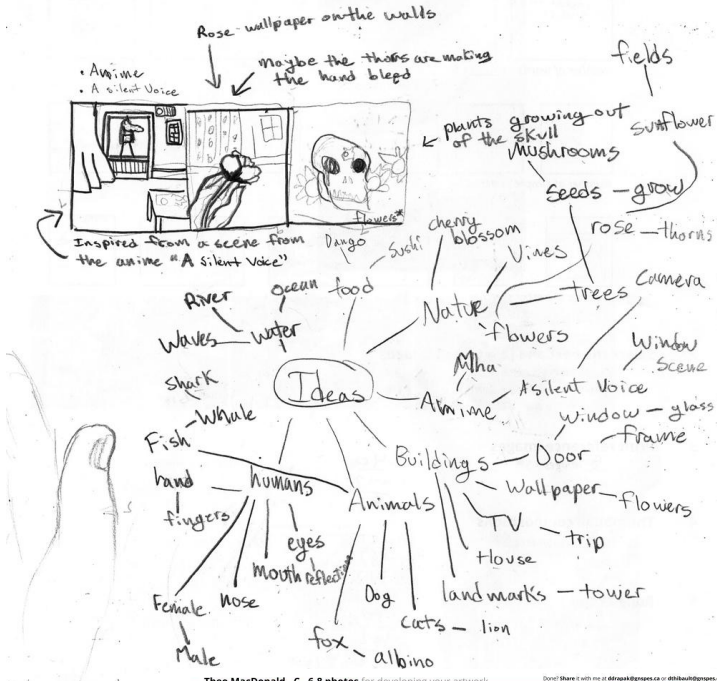 Rose wallpaper on the walls
Maybe the thorns are making
the hand bleed
• Anime
• A silent Voice
plants growing out
of the skull
flowers*
Inspired from a scene from
the anime "A Silent Voice"
fields
sunflower
Mushrooms
Seeds - grow
rose - thorns
cherry
blossom
Vines
trees
Camera
Dango
Sushi
food
Ocean
River
Waves
water
Nature
flowers
Window
Scene
Shark
Whale
Fish
Ideas
Mha
Anime
A silent Voice
Window - glass
frame
Door
Buildings
Wallpaper - flowers
TV - trip
House
landmarks - tower
hand
fingers
humans
eyes
reflection
Mouth
nose
Female
Male
Animals
Dog
Cats - lion
fox - albino
Theo MacDonald - C - 6.8 photos for developing your artwork
Done? Share it with me at ddrapak@gnspes.ca or dthibault@gnspes.c